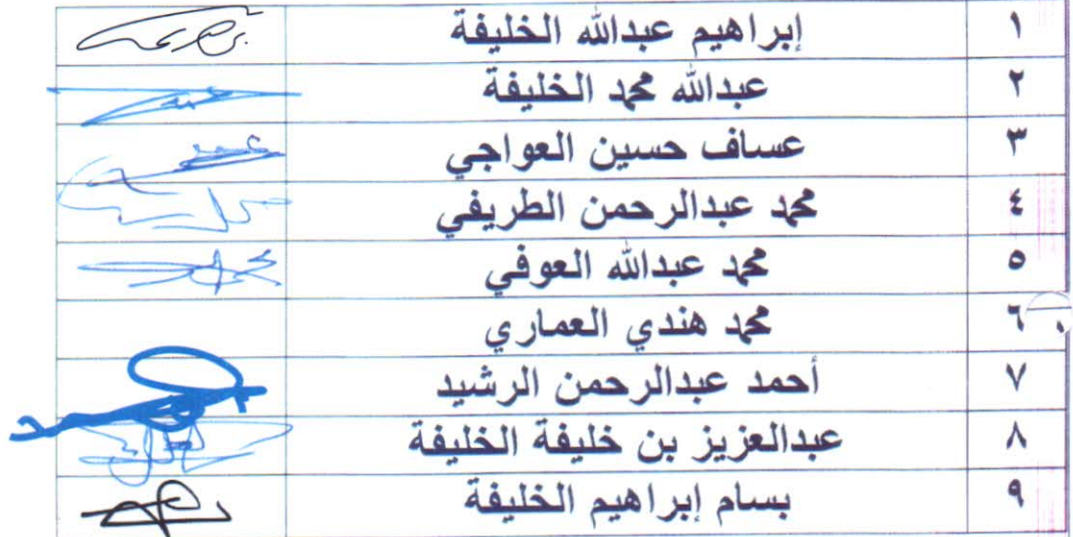 ١ إبراهيم عبدالله الخليفة
٢ عبدالله محمد الخليفة
٣ عساف حسين العواجي
٤ محمد عبدالرحمن الطريفي
٥ محمد عبدالله العوفي
٦ محمد هندي العماري
٧ أحمد عبدالرحمن الرشيد
٨ عبدالعزيز بن خليفة الخليفة
٩ بسام إبراهيم الخليفة